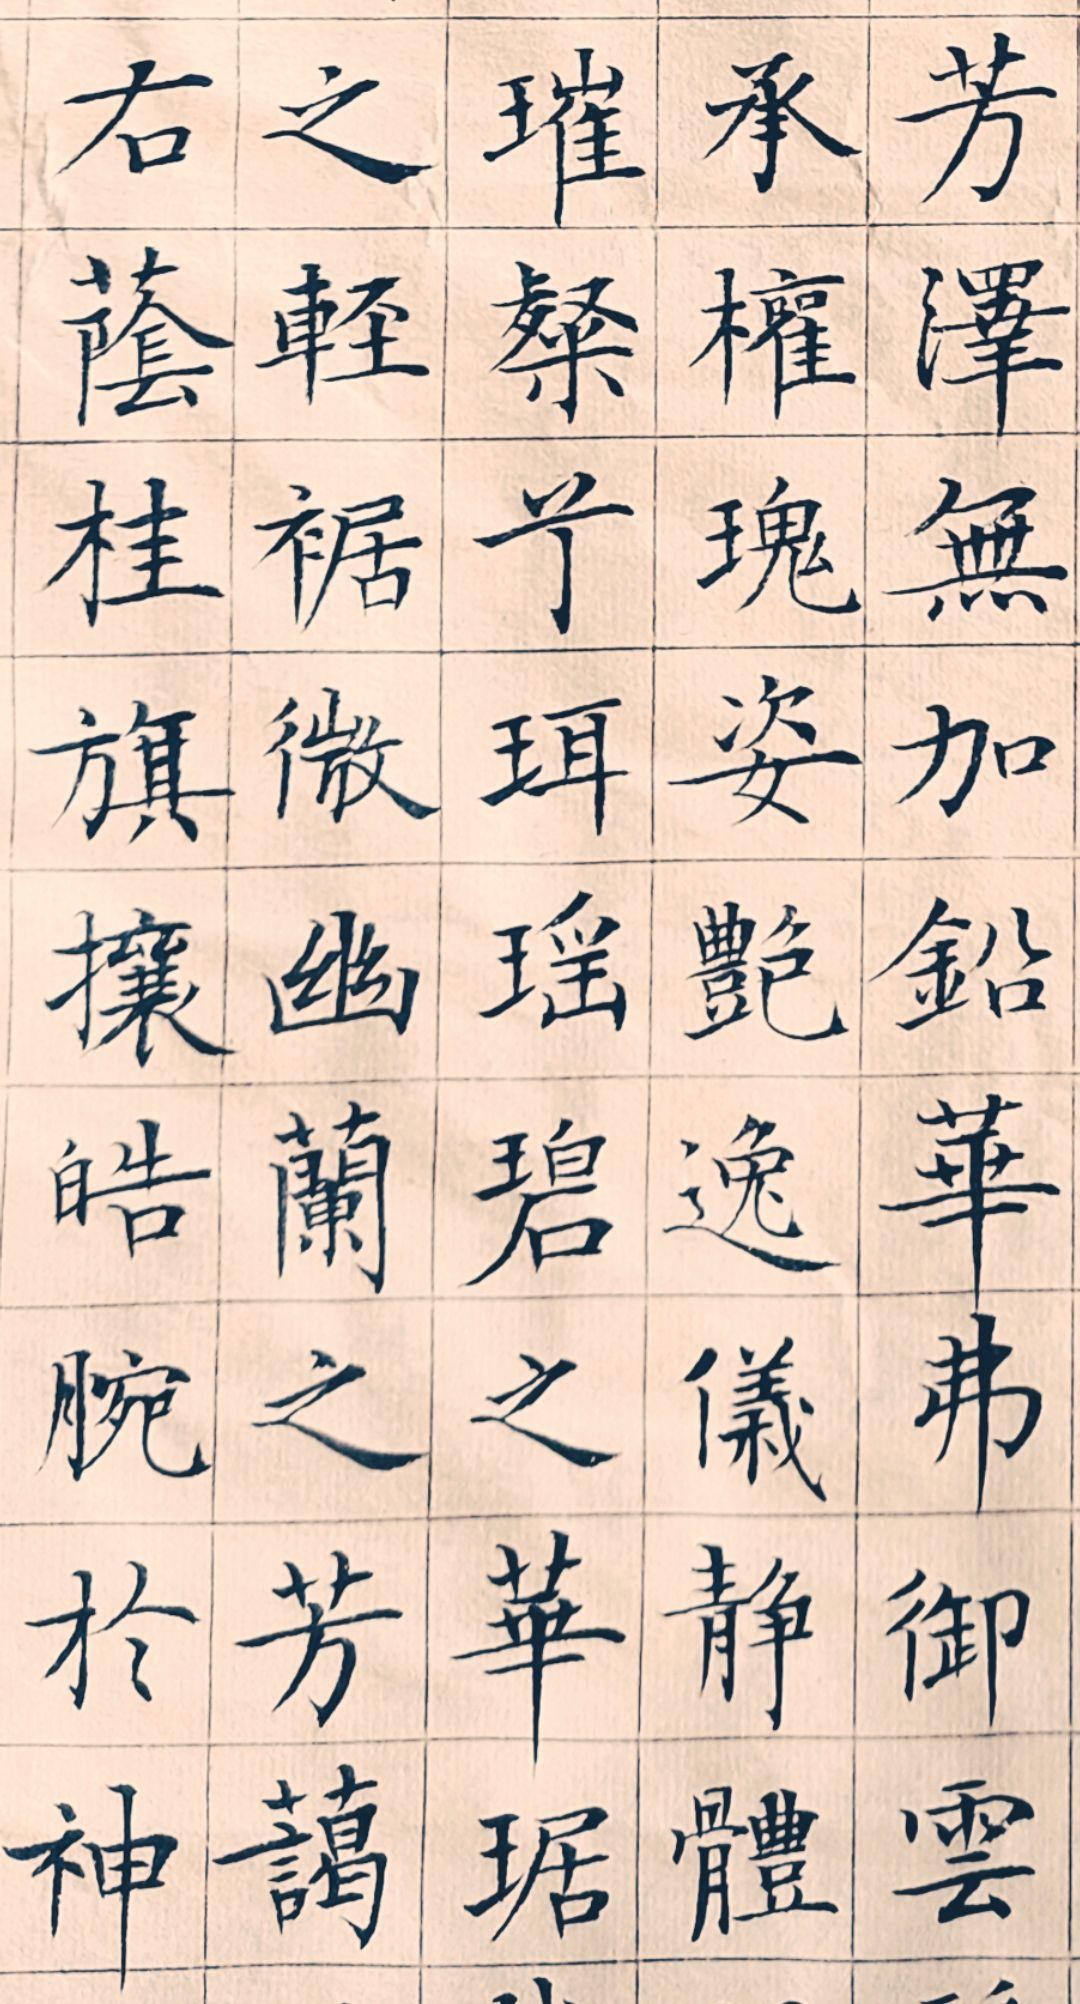 芳澤無加鉛華弗御雲
承權瑰姿艷逸儀静體
璀粲兮珥瑶碧之華琚
之輕裾微幽蘭之芳藹
右蔭桂旗攘皓腕於神